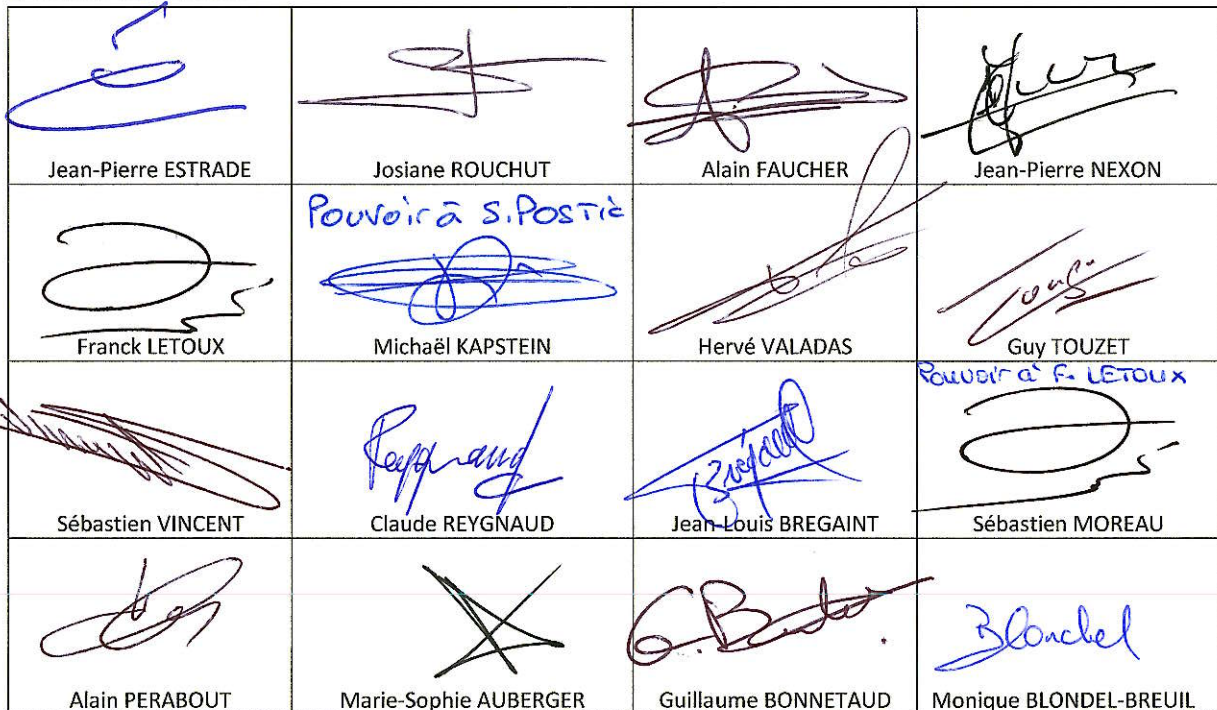 Jean-Pierre ESTRADE
Josiane ROUCHUT
Alain FAUCHER
Jean-Pierre NEXON
Franck LETOUX
Pouvoir à S. POSTIC
Michaël KAPSTEIN
Hervé VALADAS
Guy TOUZET
Sébastien VINCENT
Reygnaud
Claude REYGNAUD
Brégaint
Jean-Louis BREGAINT
Pouvoir à F. LETOUX
Sébastien MOREAU
Alain PERABOUT
Marie-Sophie AUBERGER
Guillaume BONNETAUD
Blondel
Monique BLONDEL-BREUIL